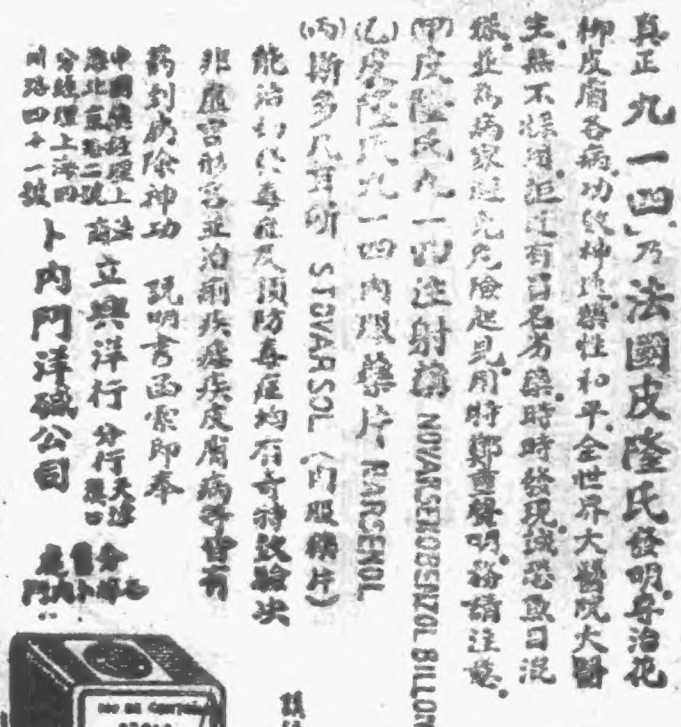 真正「九一四」乃法國皮隆氏發明專治花
柳皮膚各病功效神速藥性和平全世界大醫院大醫
生無不採用詎近有冒名劣藥時時發現誠恐魚目混
珠並為病家避免危險起見用特鄭重聲明務請注意
(甲)皮隆氏九一四注射藥 NOVARSENOBENZOL BILLON
(乙)皮隆氏九一四內服藥片 NARSENOL
(丙)斯多凡耳所 STOVARSOL (內服藥片)
能治初發毒症及預防毒症均有奇特效驗決
非虛言形容並治痢疾瘧疾皮膚病等皆有
藥到病除神功 說明書函索即奉
中國總經理上海法
立興洋行 分行天津漢口
分經理上海四
川路四十一號 卜內門洋碱公司